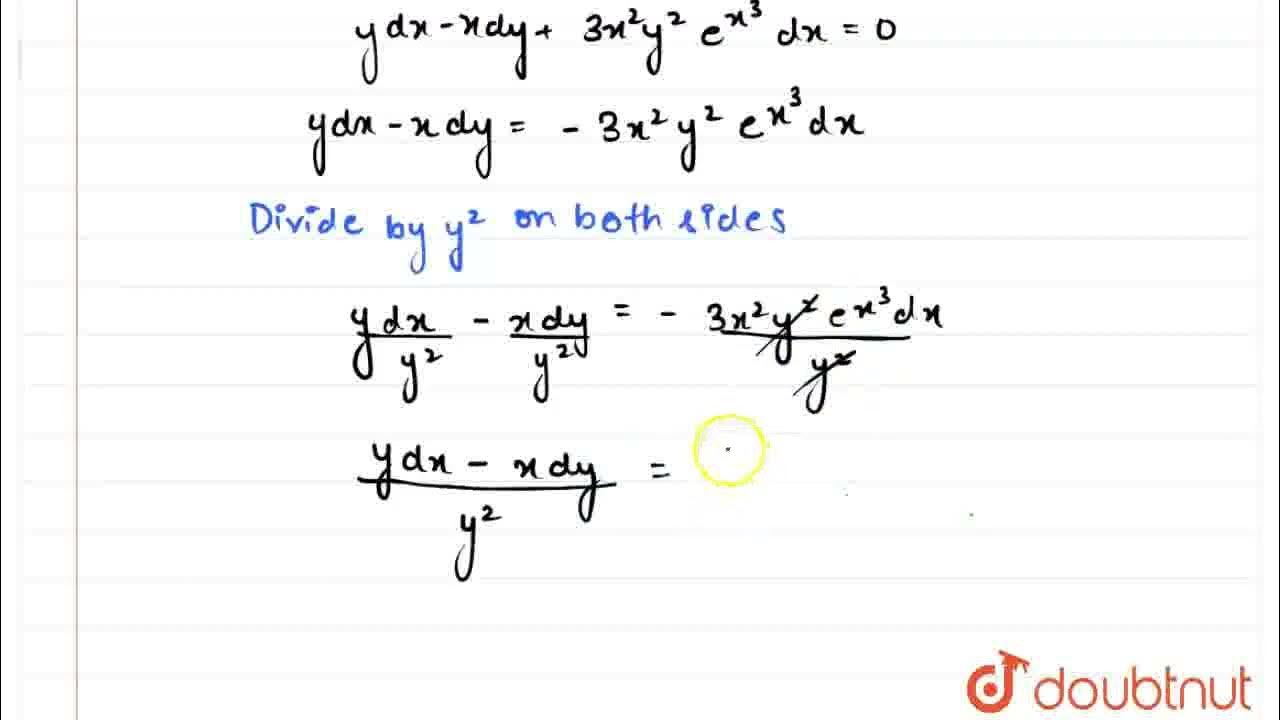 ydx - xdy + 3x²y² e^x³ dx = 0
ydx - xdy = - 3x²y² e^x³ dx
Divide by y² on both sides
ydx/y² - xdy/y² = - 3x²y² e^x³ dx/y²
ydx - xdy/y² =
doubtnut